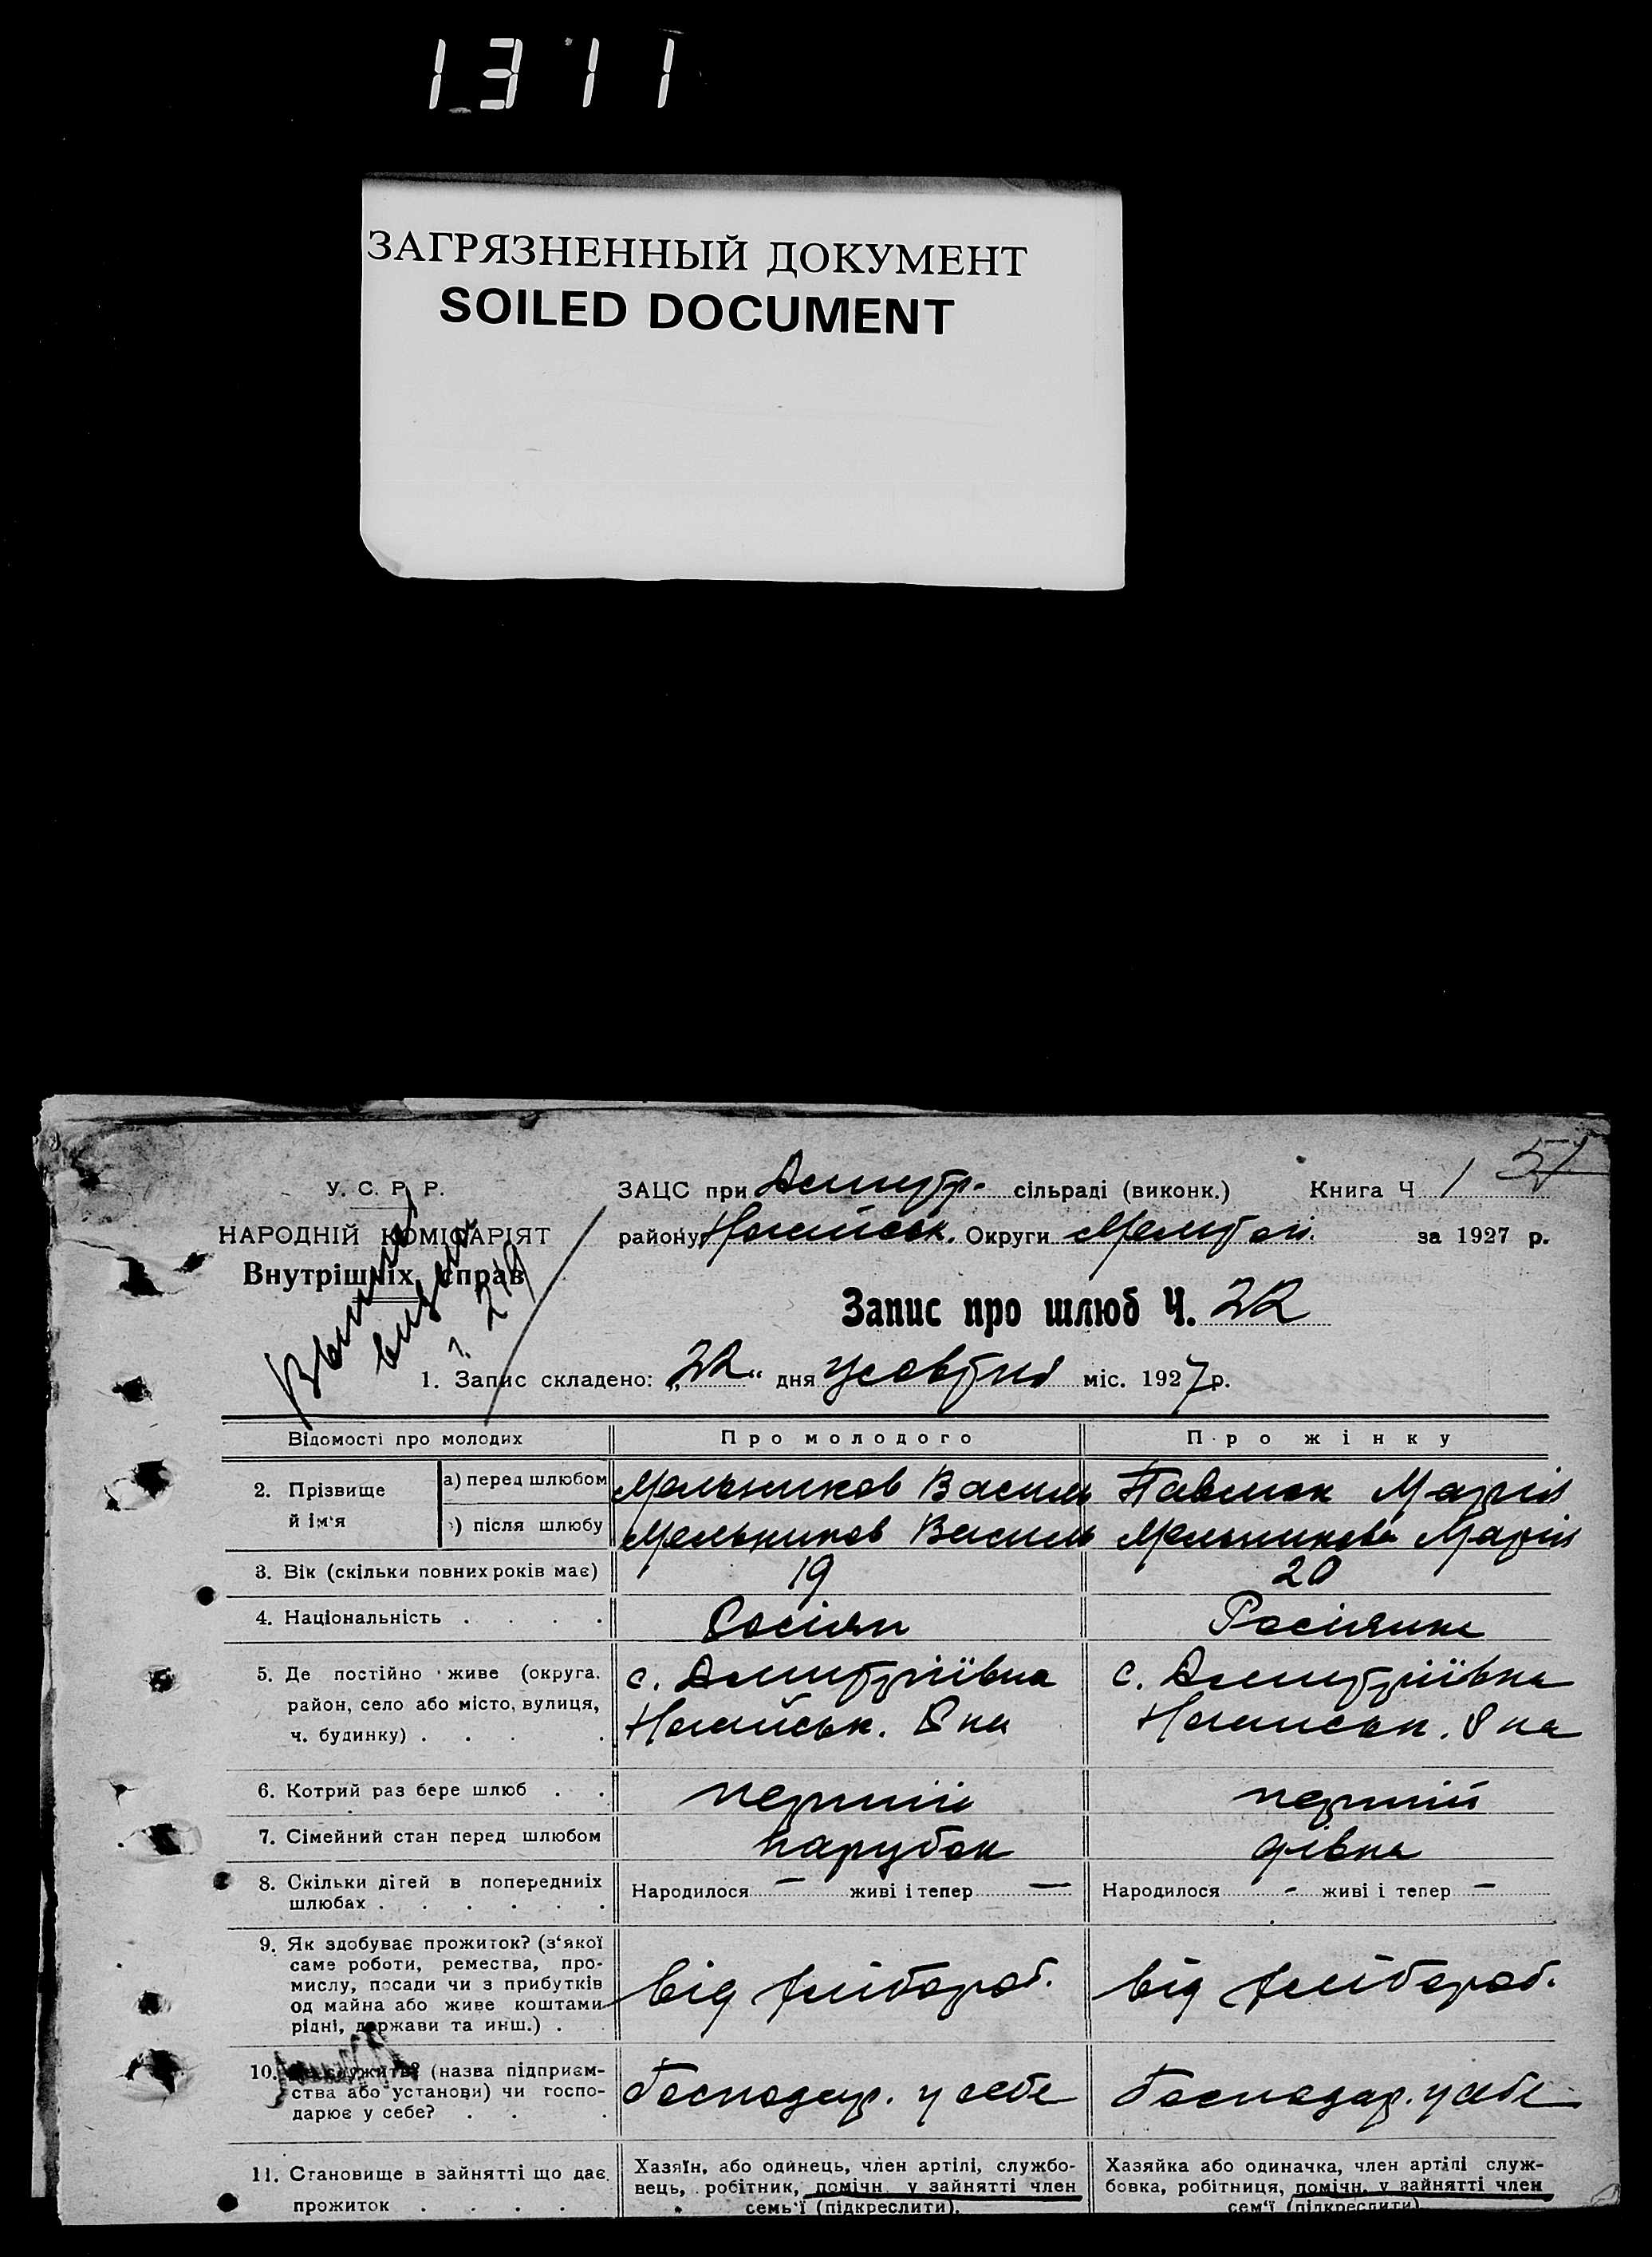 1371
ЗАГРЯЗНЕННЫЙ ДОКУМЕНТ
SOILED DOCUMENT
57
У. С. Р. Р.
НАРОДНІЙ КОМІСАРІЯТ
Внутрішніх справ
ЗАЦС при Дмитр. сільраді (виконк.) Книга Ч 1
району Ногайськ. Округи Мелітоп. за 1927 р.
Запис про шлюб Ч. 22
1. Запис складено: „22“ дня жовтня міс. 1927 р.
Відомості про молодих Про молодого Про жінку
2. Прізвище й ім‘я
а) перед шлюбом Мельников Василь Павлюк Марія
) після шлюбу Мельников Василь Мельникова Марія
3. Вік (скільки повних років має) 19 20
4. Національність . . . . Росіян Росіянка
5. Де постійно живе (округа,
район, село або місто, вулиця,
ч. будинку) . . . .
с. Дмитріївка
Ногайськ. Рна
с. Дмитріївка
Ногайськ. Рна
6. Котрий раз бере шлюб . . перший перший
7. Сімейний стан перед шлюбом парубок дівка
8. Скільки дітей в попередниіх
шлюбах . . . . . .
Народилося — живі і тепер —
Народилося - живі і тепер —
9. Як здобуває прожиток? (з‘якої
саме роботи, ремества, про-
мислу, посади чи з прибутків
од майна або живе коштами
рідні, держави та инш.) .
від хлібороб.
від хлібороб.
10. Де служить? (назва підприєм-
ства або установи) чи госпо-
дарює у себе? . . .
Господар. у себе
Господар. у себе
11. Становище в зайнятті що дає
прожиток . . . . .
Хазяїн, або одинець, член артілі, службо-
вець, робітник, помічн. у зайнятті член
семь‘ї (підкреслити).
Хазяйка або одиначка, член артілі служ-
бовка, робітниця, помічн. у зайнятті член
сем‘ї (підкреслити)